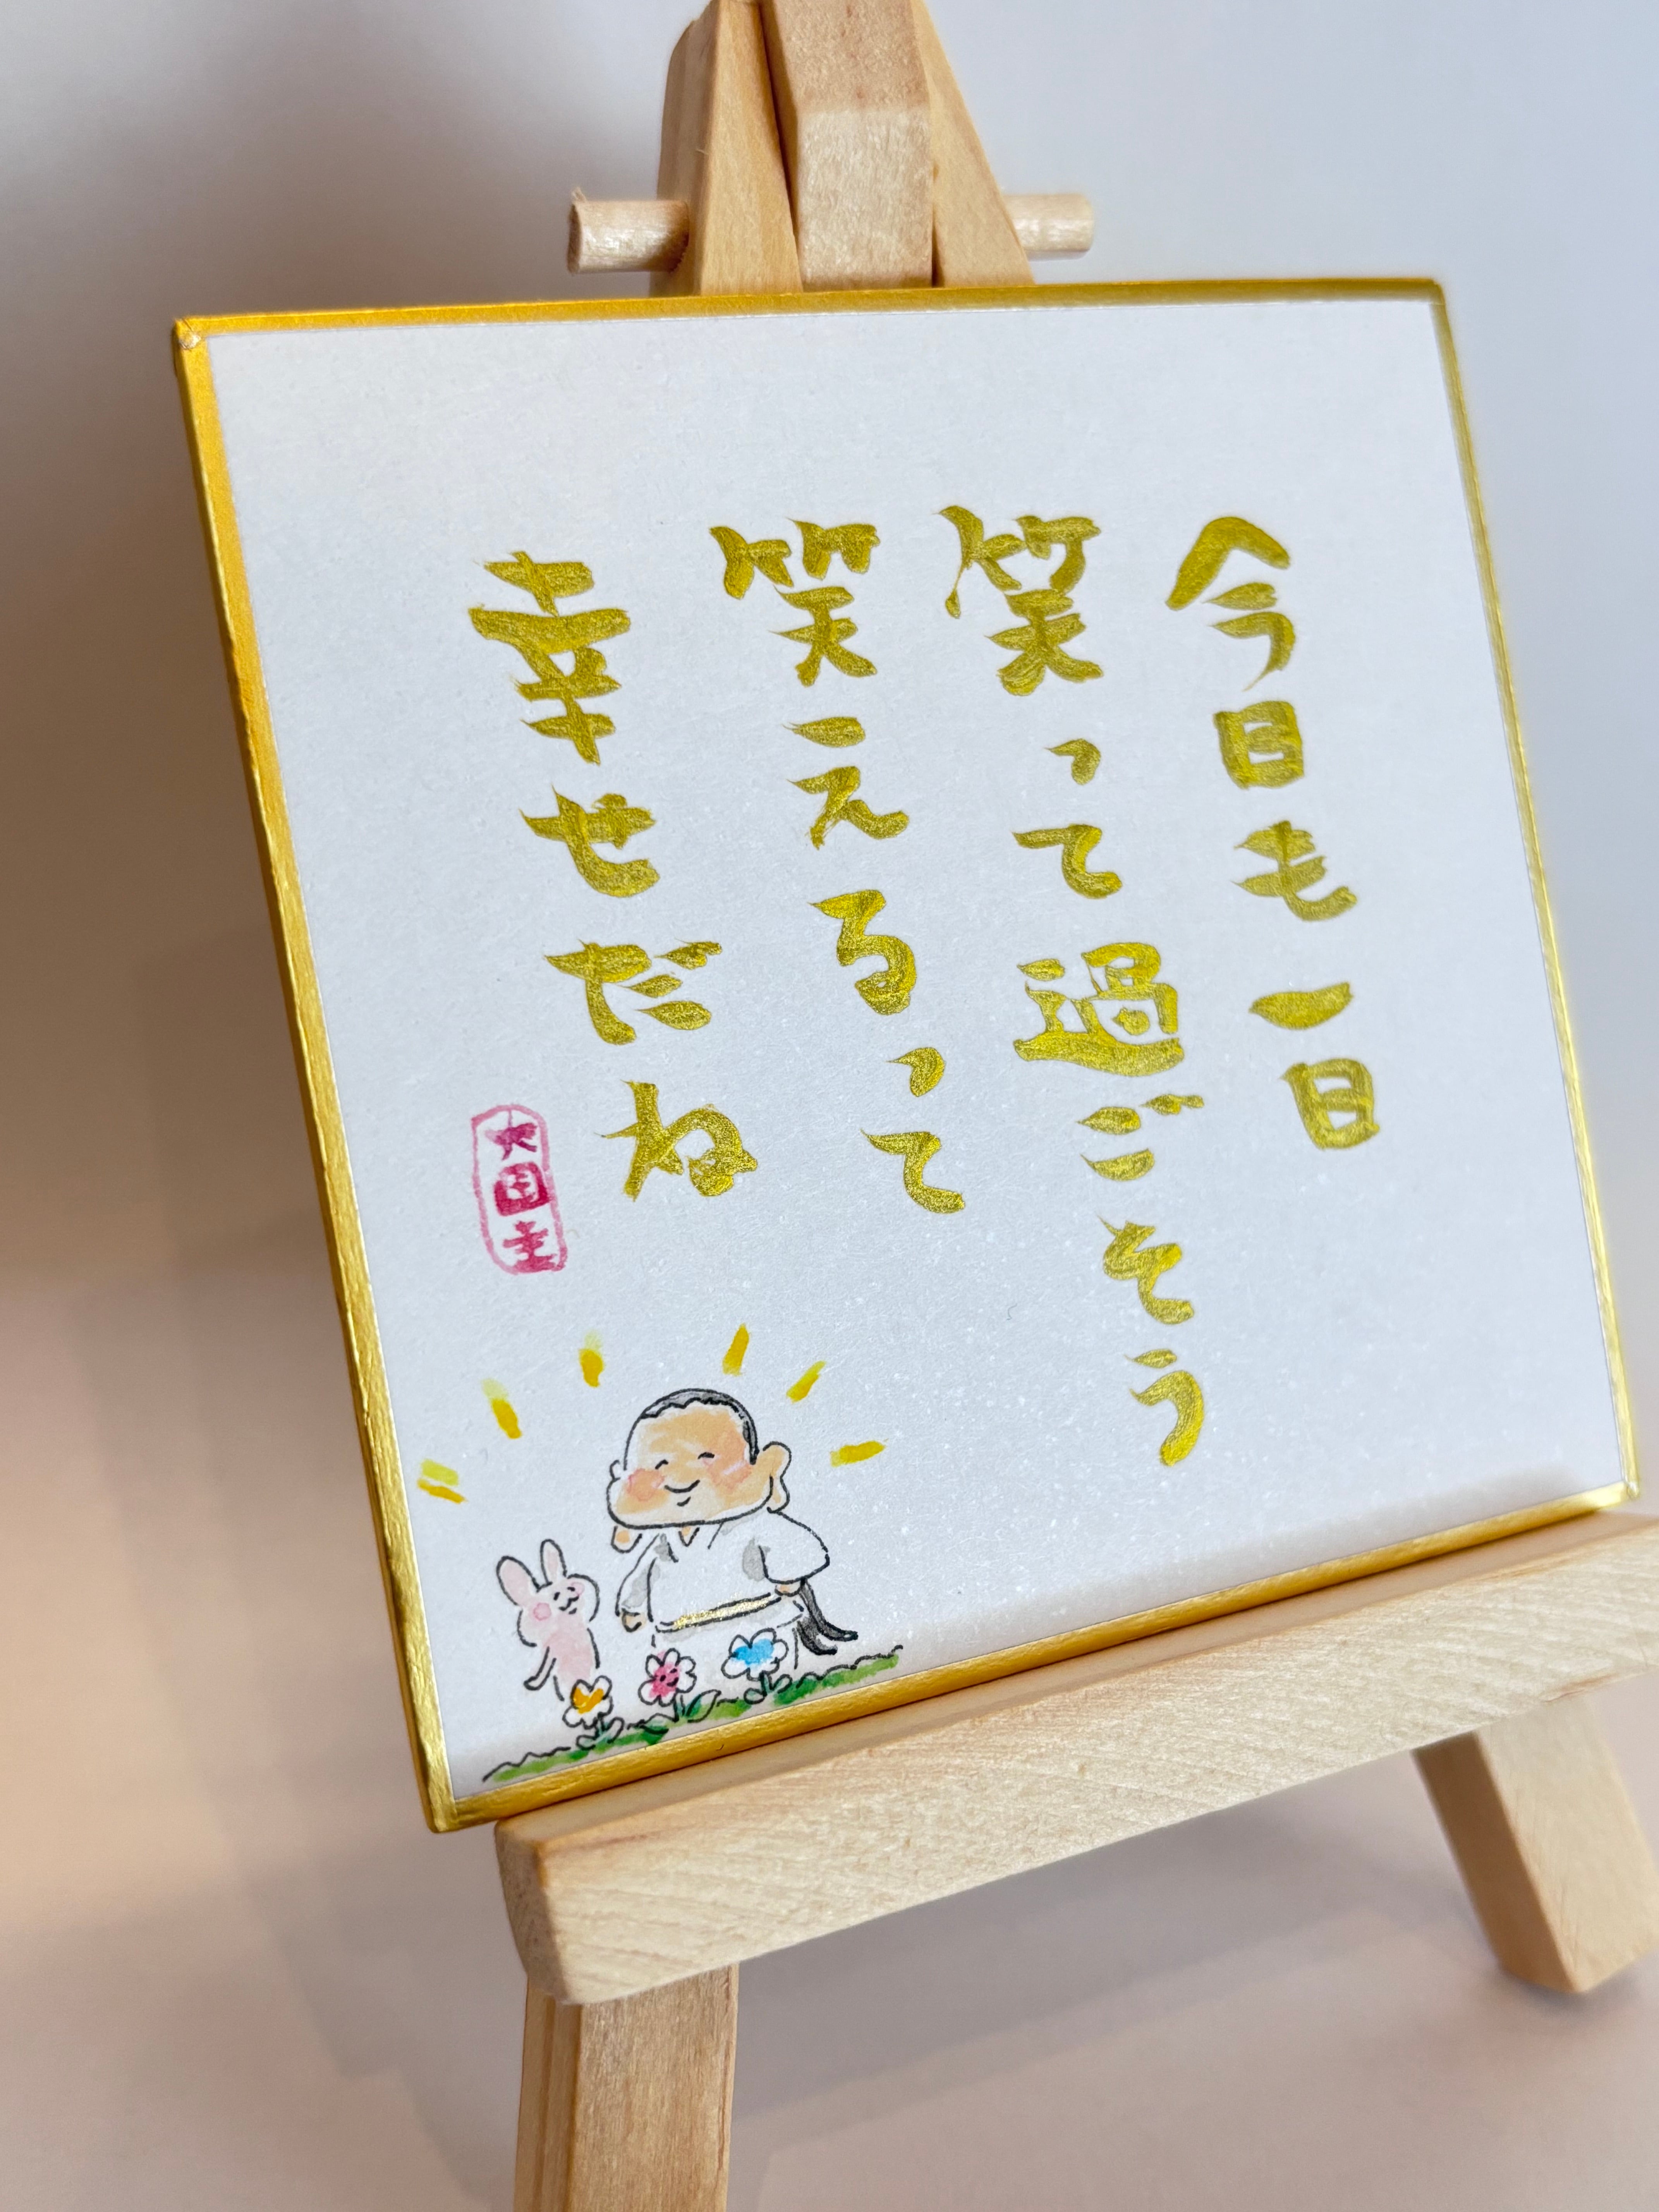 今日も一日
笑って過ごそう
笑えるって
幸せだね
大国主